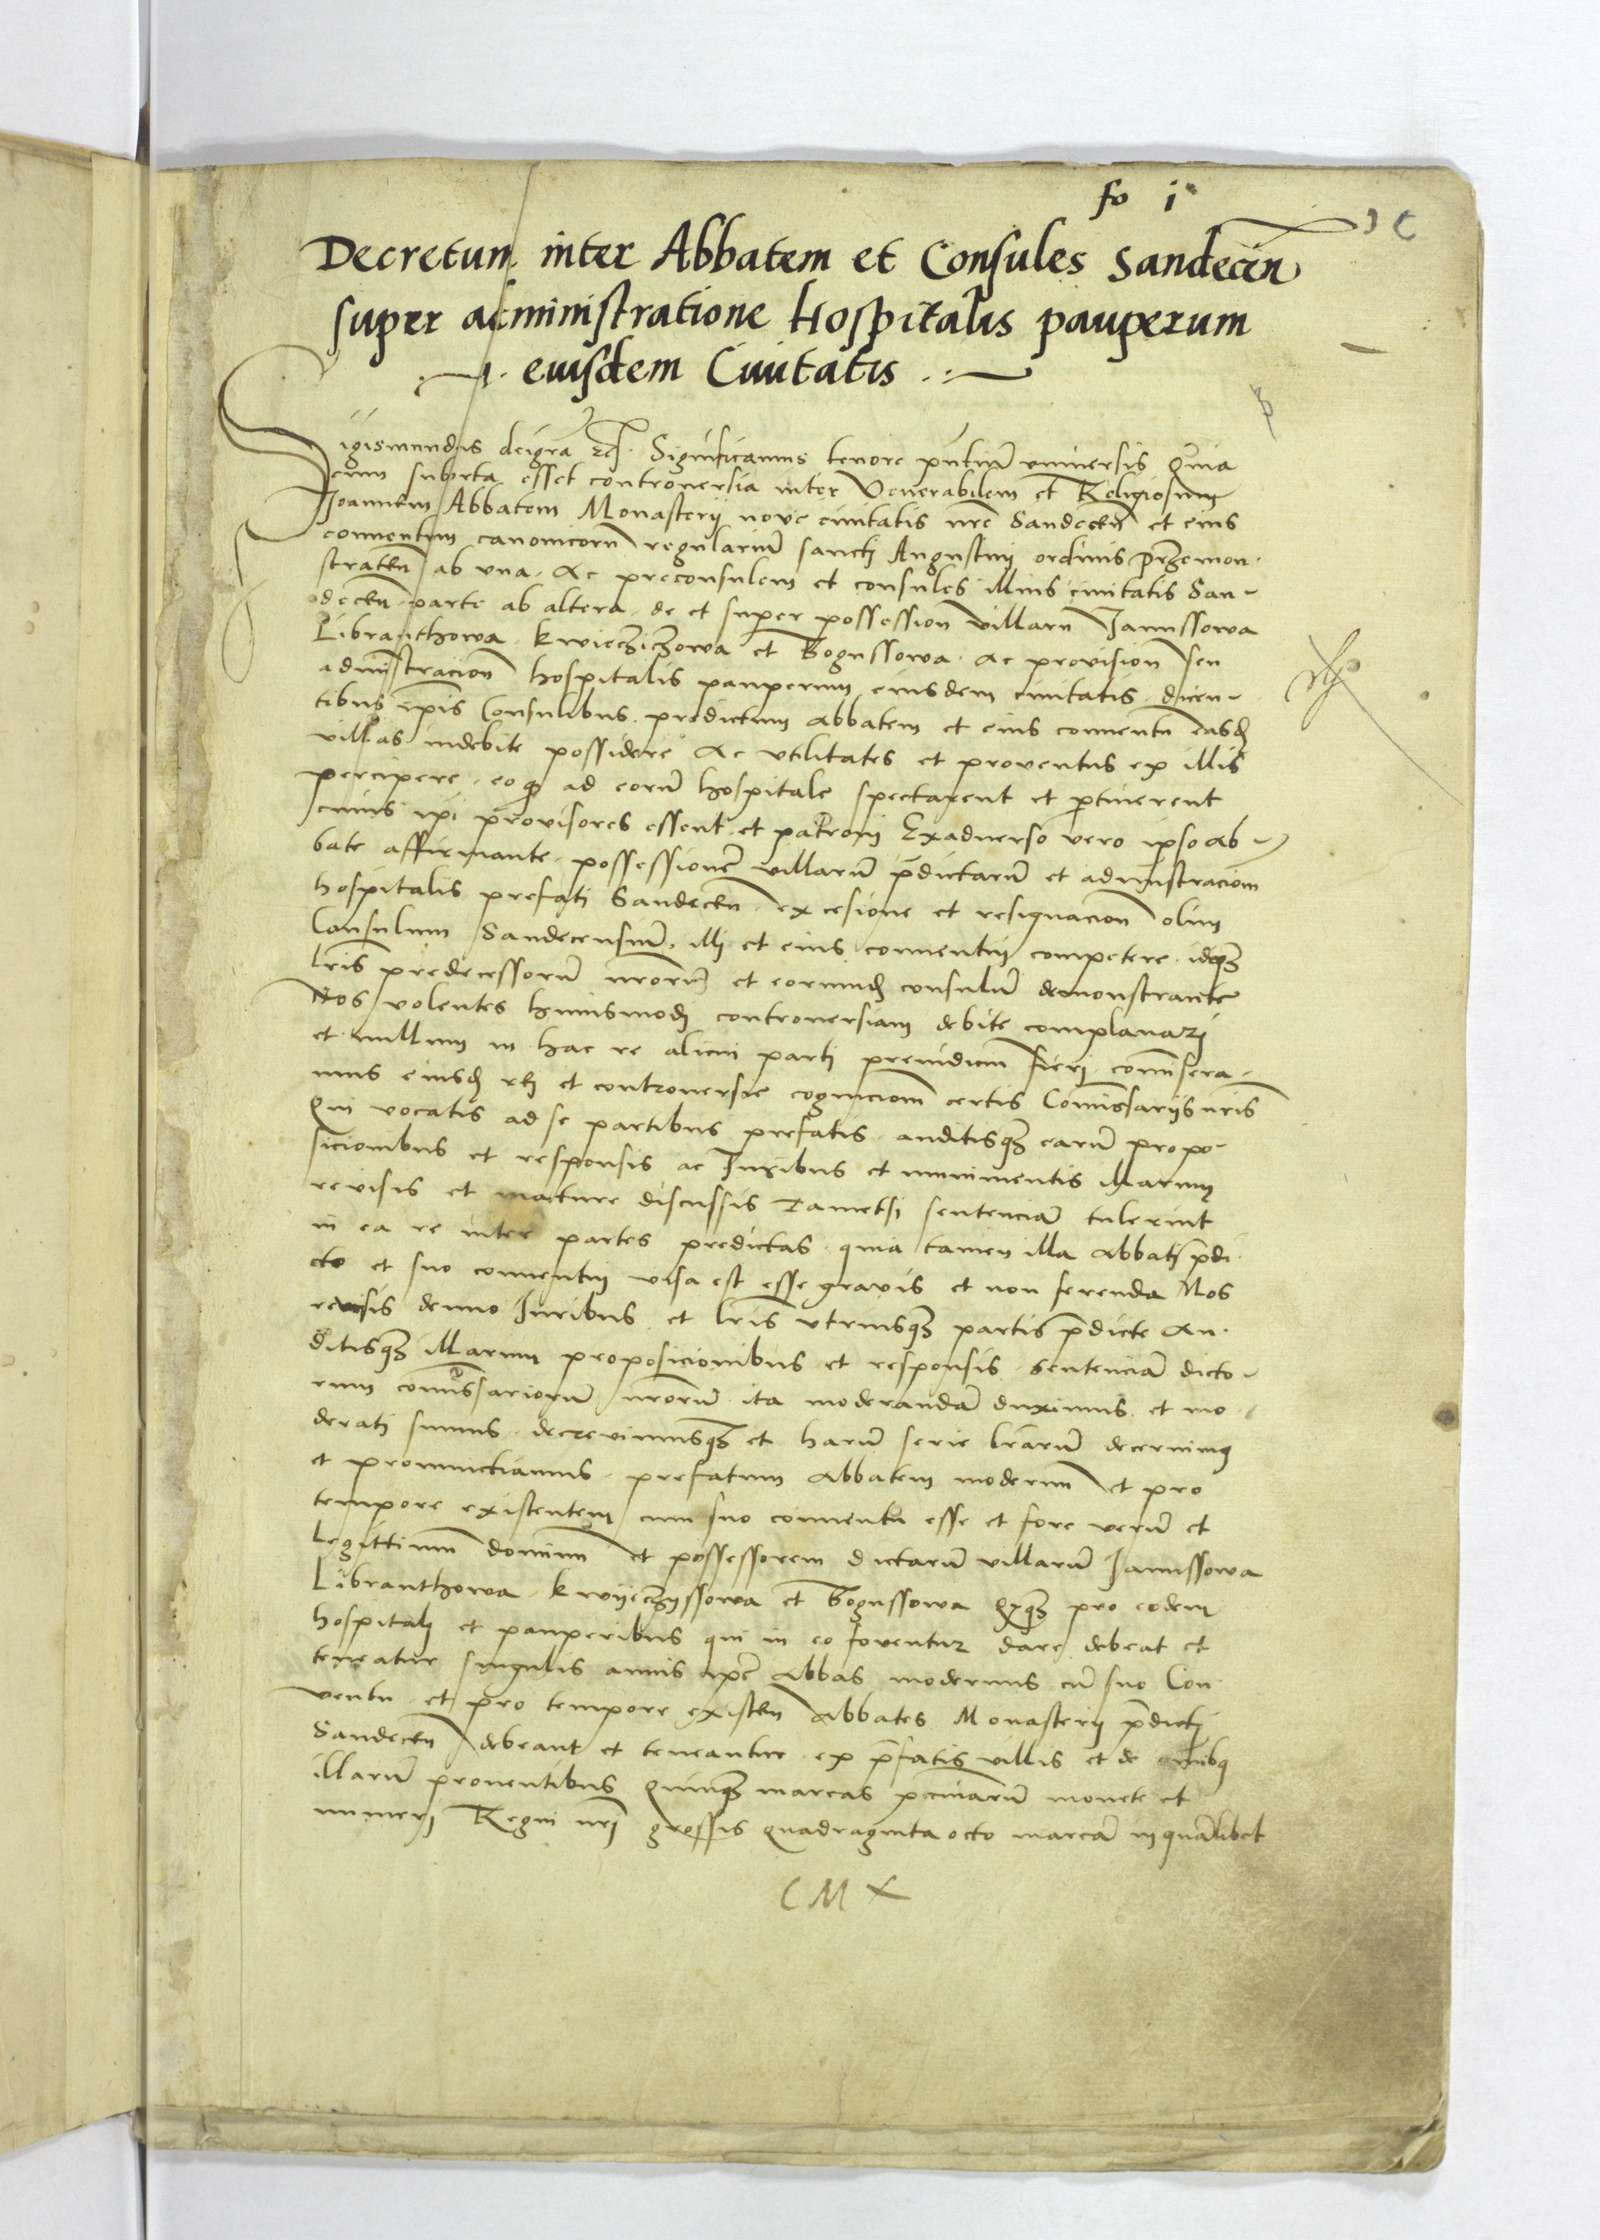 fo i
Decretum inter Abbatem et Consules Sandecen
super administratione Hospitalis pauperum
eiusdem Civitatis
Sigismundus dei gra etc. Significamus tenore pntium universis Quia
cum suborta esset controversia inter Venerabilem et Religiosum
Joannem Abbatem Monasterij nove civitatis nre Sandecen et eius
conventum canonicorum regularium sancti Augustini ordinis Premon-
straten ab una. Ac preconsulem et consules illius civitatis San-
decen parte ab altera. de et super possession villaru Janussowa
Libranthowa. Kwieczichowa et Bogussowa. Ac provision seu
administracion hospitalis pauperum eiusdem civitatis. dicen-
tibus ipis Consulibus. predictum abbatem et eius conventu easd
villas indebite possidere Ac utilitates et proventus ex illis
percipere. eo q ad eorum hospitale spectarent et ptinerent
cuius ipi provisores essent et patroni Exadverso vero ipso ab-
bate affirmante. possessione villaru pdictaru et administracion
hospitalis prefati Sandecen. ex cesione et resignacion olim
Consulum Sandecensium. illi et eius conventui competere. idq
lris predecessoru nroru et eorund consulu demonstrante
Nos volentes huiusmodi controversiam debite complanari
et nullum in hac re alicui parti preiudicium fieri. commisera-
mus eiusd rei et controversie cognicion certis Comissarijs nris
Qui vocatis ad se partibus prefatis. auditisq earu propo-
sicionibus et responsis ac Juribus et munimentis illarum
revisis et mature discussis Tametsi sentenciam tulerint
in ea re inter partes predictas. quia tamen illa abbati pdi-
cto et suo conventui visa est esse gravis et non ferenda Nos
revisis denuo Juribus et lris utriusq partis pdicte au-
ditisq illarum proposicionibus et responsis. sentencia dicto-
rum comissarioru nroru ita moderanda duximus et mo-
derati sumus. decrevimusq et haru serie lraru decernimus
et pronunctiamus. prefatum abbatem modernu et pro
tempore existentem cum suo conventu esse et fore veru et
legittimu dominu et possessorem dictaru villaru Janussowa
Libranthowa. Kwijeczijssowa et Bogussowa Quodq pro eodem
hospitali et pauperibus qui in eo foventur dare debeat et
teneatur singulis annis ipe Abbas modernus cu suo Con
ventu et pro tempore existen Abbates Monasterij pdicti
Sandecen debeant et teneantur ex pfatis villis et de omnibus
illaru proventibus Quinq marcas pecuniaru monete et
numeri Regni nri grossis quadraginta octo marca in qualibet
C M X